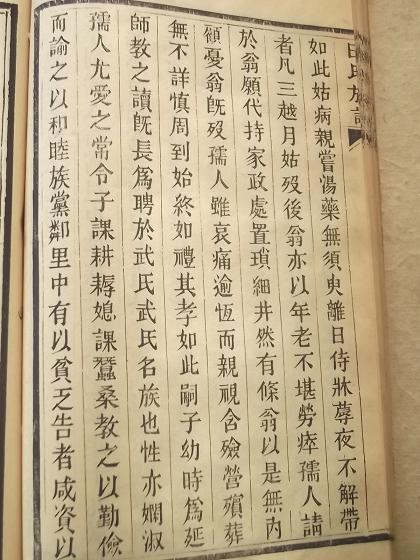 田氏族譜
如此姑病親嘗湯藥無須臾離日侍牀蓐夜不解帶
者凡三越月姑歿後翁亦以年老不堪勞瘁孺人請
於翁願代持家政處置瑣細井然有條翁以是無內
顧憂翁旣歿孺人雖哀痛逾恆而親視含殮營殯葬
無不詳慎周到始終如禮其孝如此嗣子幼時爲延
師教之讀旣長爲聘於武氏武氏名族也性亦嫻淑
孺人尤愛之常令子課耕耨媳課蠶桑教之以勤儉
而諭之以和睦族黨鄰里中有以貧乏告者咸資以